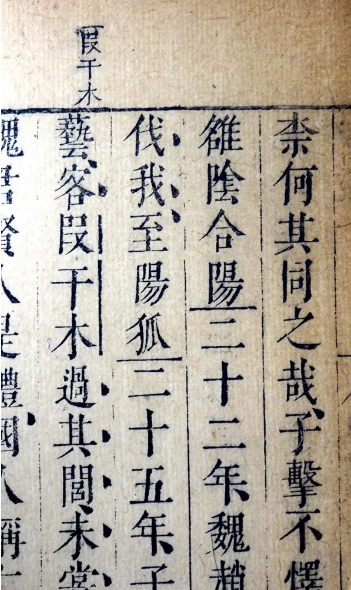 柰何其同之哉、子擊不懌
雒陰合陽二十二年、魏趙
伐我至陽狐二十五年、子
段干木
藝、客段干木過其閭、未嘗
魏君賢人是禮國人稱